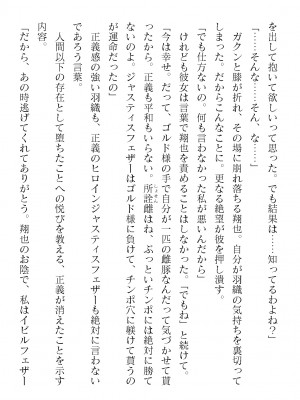 を出して抱いて欲しいって思った。でも結果は……知ってるわよね？」
「……そんな……そん、な……」
ガクンと膝が折れ、その場に崩れ落ちる翔也。自分が羽織の気持ちを裏切って
しまった。だからこんなことに。更なる絶望が彼を押し潰す。
「でも仕方ないの。何も言わなかった私が悪いんだから」
けれども彼女は言葉で翔也を責めることはしなかった。「でもね」と続けて。
「今は幸せ。だって、ゴルド様の手で自分が一匹の雌豚なんだって気づかせて貰
えたから。正義も平和もいらない。所詮雌はね、ぶっといチンポには絶対に勝て
ないの。ジャスティスフェザーはゴルド様に負けて、チンポ穴に躾けて貰うの
が運命だったの」
正義感の強い羽織も、正義のヒロインジャスティスフェザーも絶対に言わない
であろう言葉。
人間以下の存在として堕ちたことへの悦びを教える、正義が消えたことを示す
内容。
「だから、あの時逃げてくれてありがとう。翔也のお陰で、私はイビルフェザー